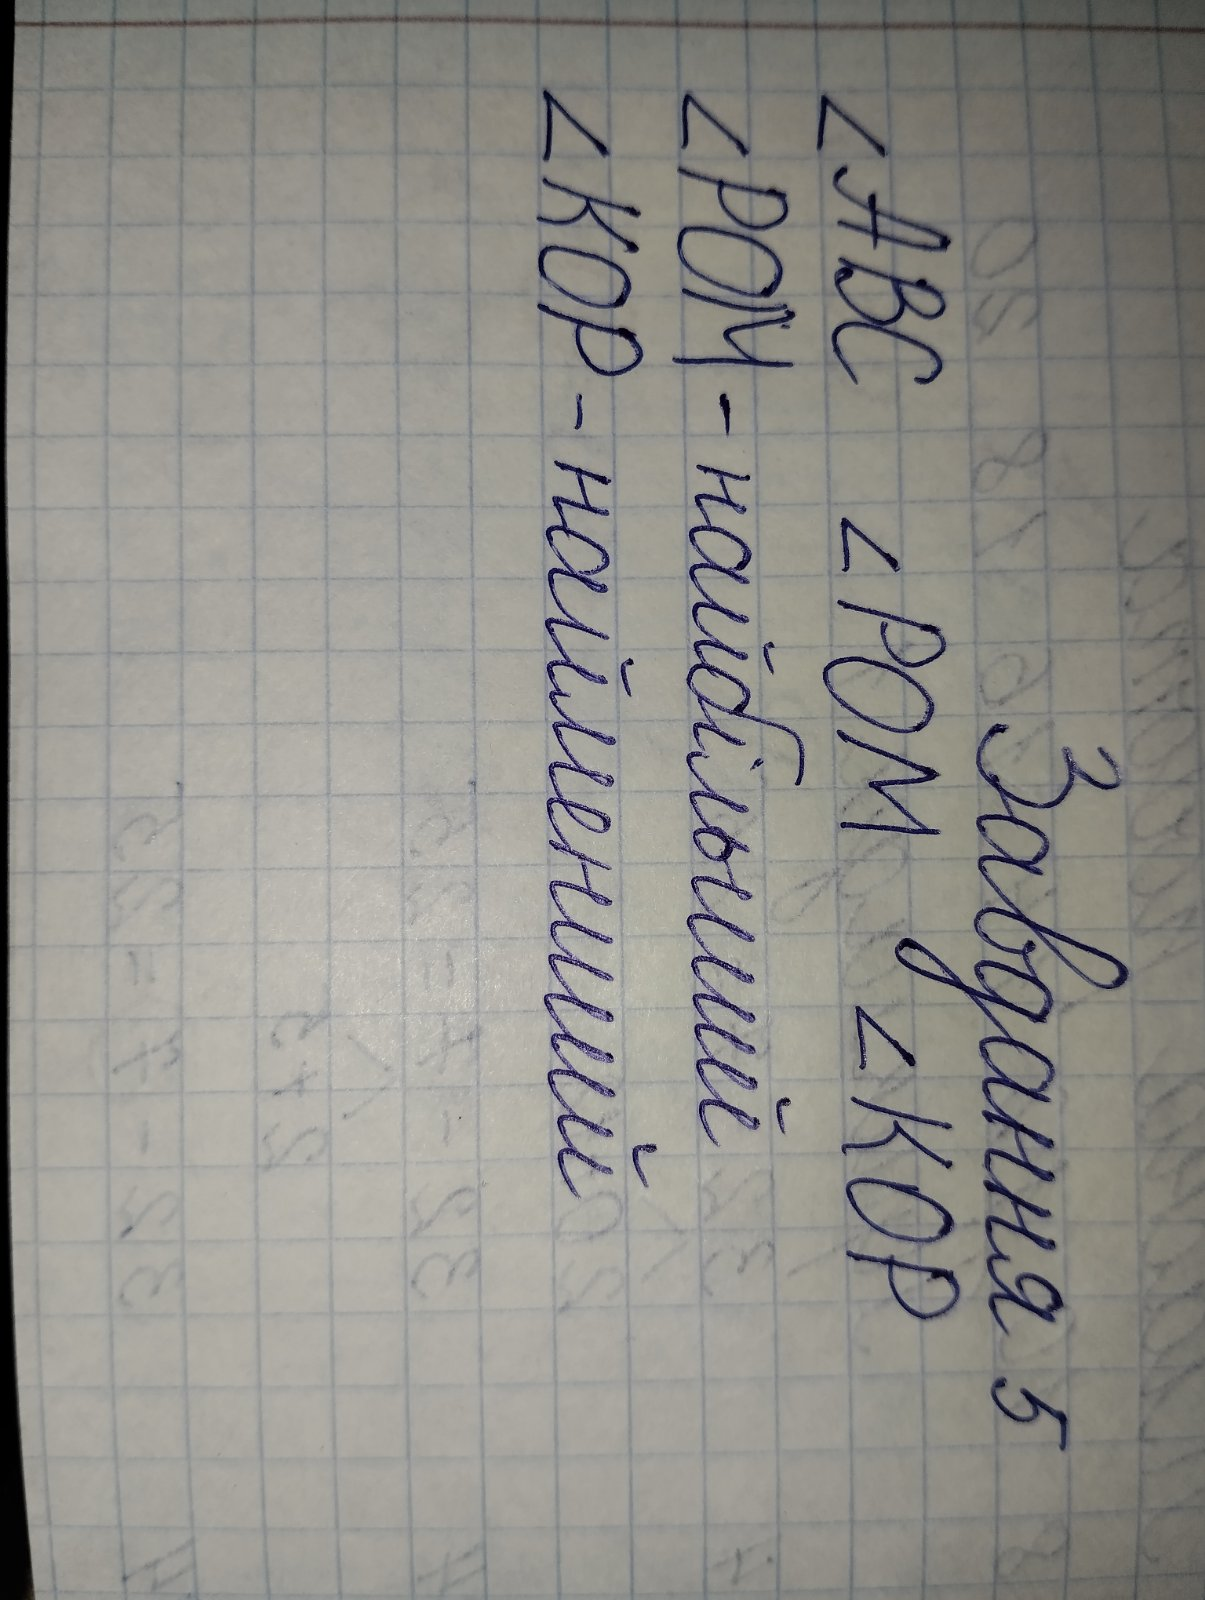 Завдання 5
∠ABC ∠POM ∠KOP
∠POM - найбільший
∠KOP - найменший